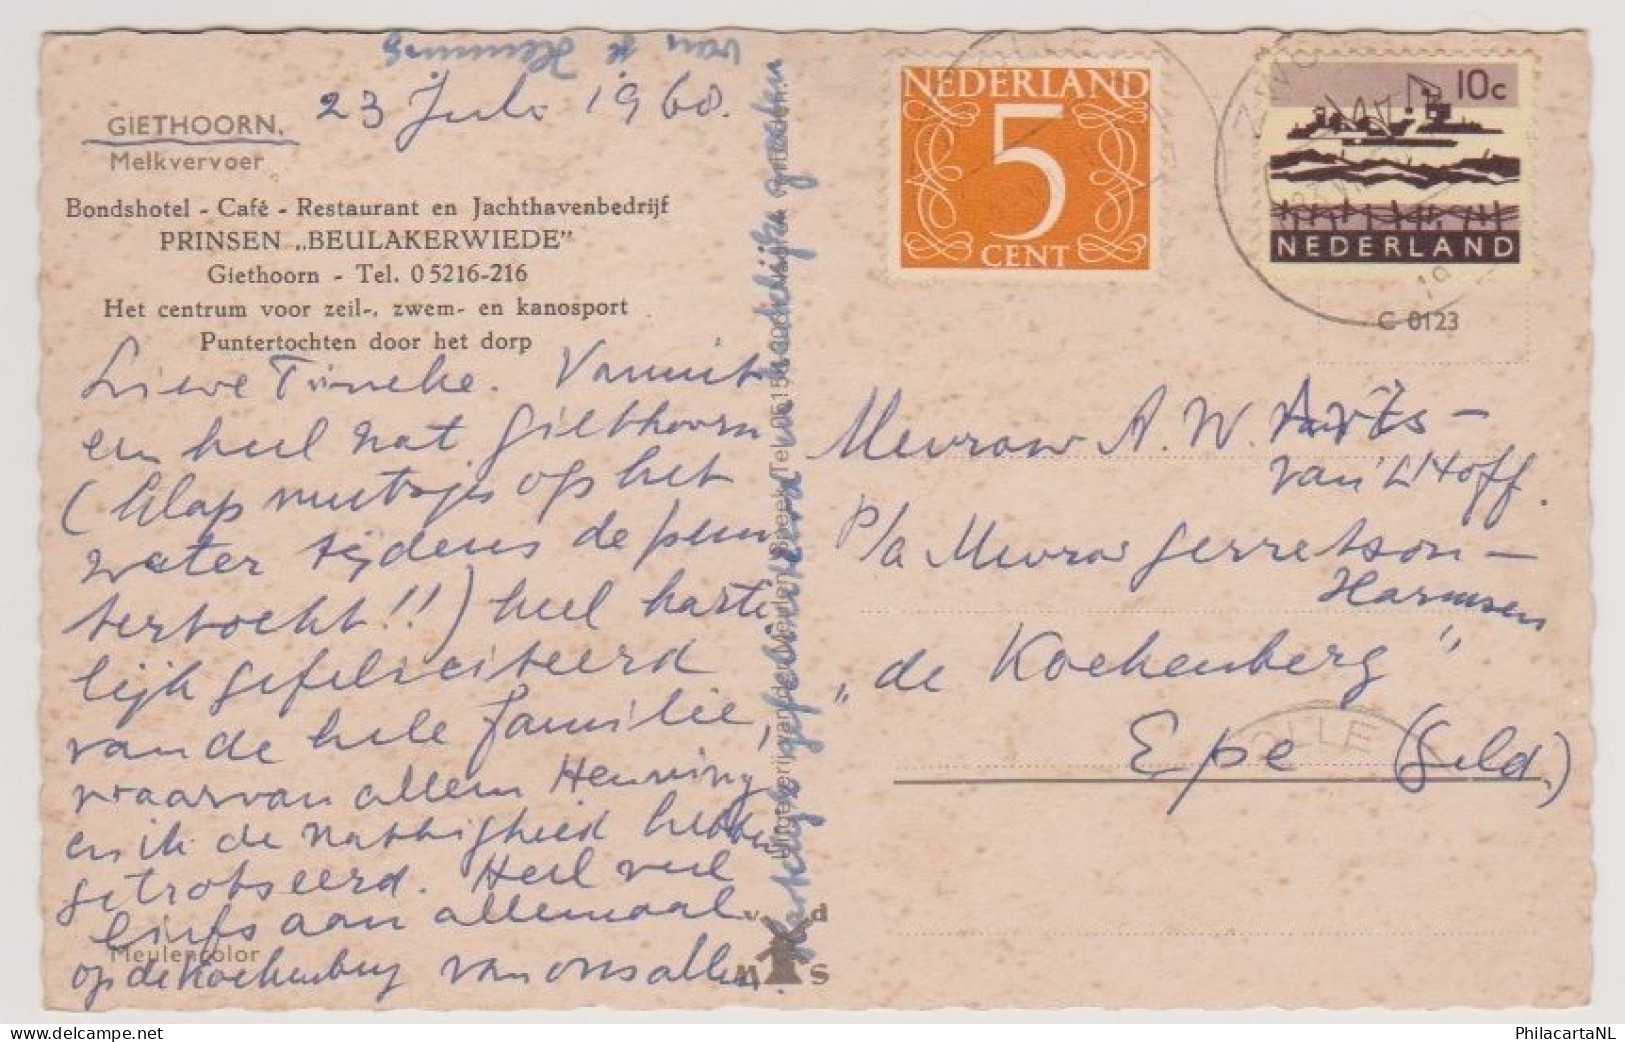 van je Henning
23 Juli 1968.
GIETHOORN,
Melkvervoer
Bondshotel - Café - Restaurant en Jachthavenbedrijf
PRINSEN „BEULAKERWIEDE"
Giethoorn - Tel. 05216-216
Het centrum voor zeil-, zwem- en kanosport
Puntertochten door het dorp
Lieve Tineke. Vanuit
een heel nat Giethoorn
(klap op het
water tijdens de pun
tertocht!!) heel harte
lijk gefeliciteerd
van de hele familie,
waarvan alleen Henning
en ik de nattigheid hebben
getrotseerd. Heel veel
liefs aan allemaal
op de Koekenberg van ons allen.
Meulencolor
v d
M S
Hartelijk gefeliciteerd en hartelijke groeten
NEDERLAND
5
CENT
10c
NEDERLAND
C 0123
Mevrouw A. W.
van 't Hoff.
P/a Mevrouw Gerretson –
Harmsen
„de Koekenberg"
Epe (Geld.)
OLLE
PhilacartaNL